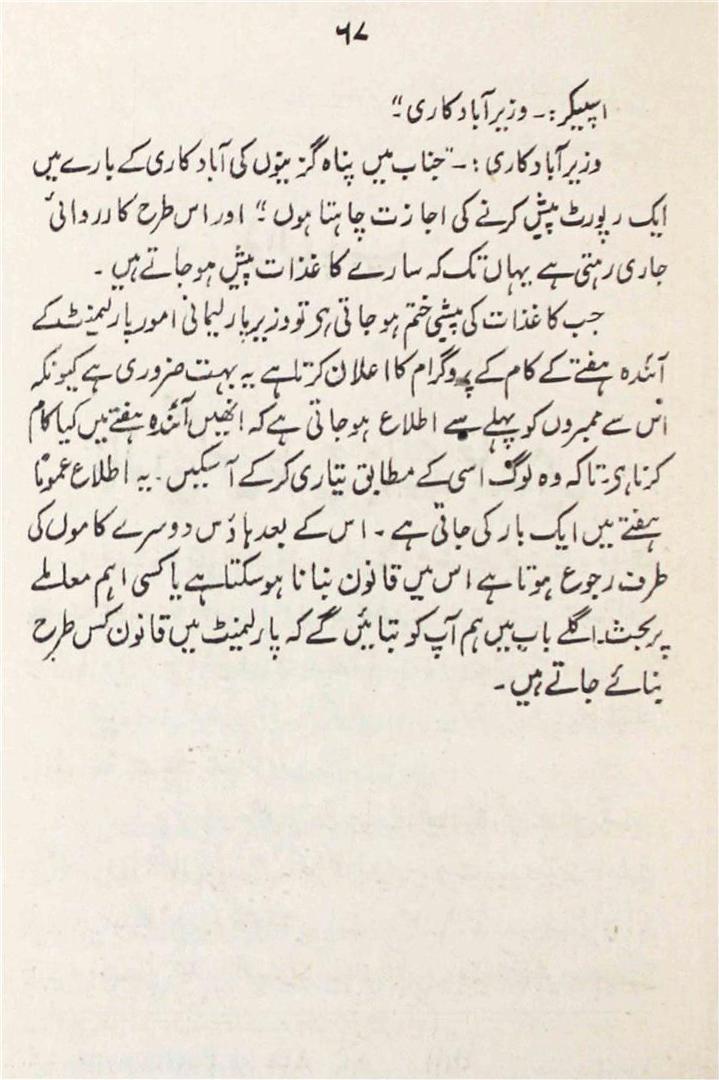 ۶۷
اسپیکر:۔ وزیر آباد کاری۔"
وزیر آباد کاری :۔ "جناب میں پناہ گزینوں کی آباد کاری کے بارے میں
ایک رپورٹ پیش کرنے کی اجازت چاہتا ہوں۔" اور اس طرح کارروائی
جاری رہتی ہے یہاں تک کہ سارے کاغذات پیش ہو جاتے ہیں ۔
جب کاغذات کی پیشی ختم ہو جاتی ہی تو وزیر پارلیمانی امور پارلیمنٹ کے
آئندہ ہفتے کے کام کے پروگرام کا اعلان کرتا ہے یہ بہت ضروری ہے کیونکہ
اس سے ممبروں کو پہلے سے اطلاع ہو جاتی ہے کہ انھیں آئندہ ہفتے میں کیا کام
کرنا ہی۔ تاکہ وہ لوگ اسی کے مطابق تیاری کر کے آ سکیں ۔ یہ اطلاع عموماً
ہفتے میں ایک بار کی جاتی ہے ۔ اس کے بعد ہاؤس دوسرے کاموں کی
طرف رجوع ہوتا ہے اس میں قانون بنانا ہو سکتا ہے یا کسی اہم معاملے
پر بحث۔ اگلے باب میں ہم آپ کو بتائیں گے کہ پارلیمنٹ میں قانون کس طرح
بنائے جاتے ہیں ۔